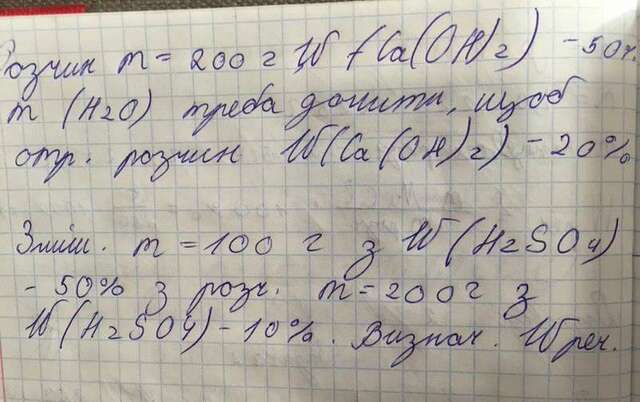 Розчин m = 200 г W (Ca(OH)2) - 50%.
m (H2O) треба долити, щоб
отр. розчин W(Ca(OH)2) - 20%
Зміш. m = 100 г з W(H2SO4)
- 50% з розч. m = 200г з
W(H2SO4) - 10%. Визнач. W реч.